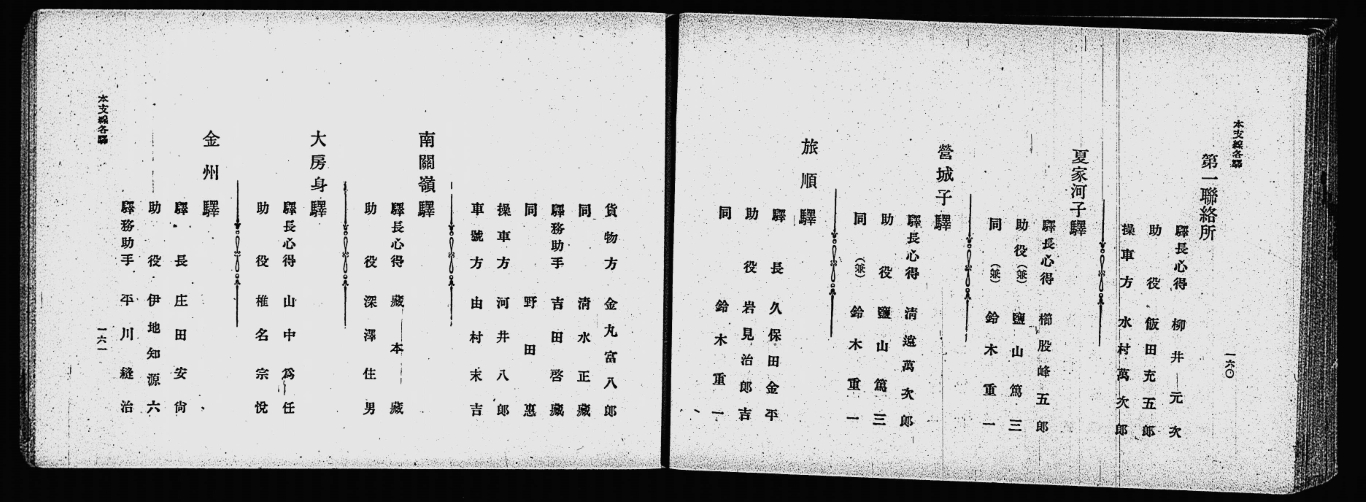 本支線各驛
第一聯絡所
驛長心得 柳井元次
助役 飯田充五郎
操車方 水村萬次郎
夏家河子驛
驛長心得 櫛股峰五郎
助役(兼) 鹽山篤三
同(兼) 鈴木重一
營城子驛
驛長心得 清遠萬次郎
助役 鹽山篤三
同(兼) 鈴木重一
旅順驛
驛長 久保田金平
助役 岩見治郎吉
同 鈴木重一
一六〇
貨物方 金丸富八郎
同 清水正藏
驛務助手 吉田啓藏
同 野田惠
操車方 河井八郎
車號方 由村末吉
南關嶺驛
驛長心得 藏本藏
助役 深澤住男
大房身驛
驛長心得 山中爲任
助役 椎名宗悅
金州驛
驛長 庄田安尙
助役 伊地知源六
驛務助手 平川縫治
本支線各驛
一六一